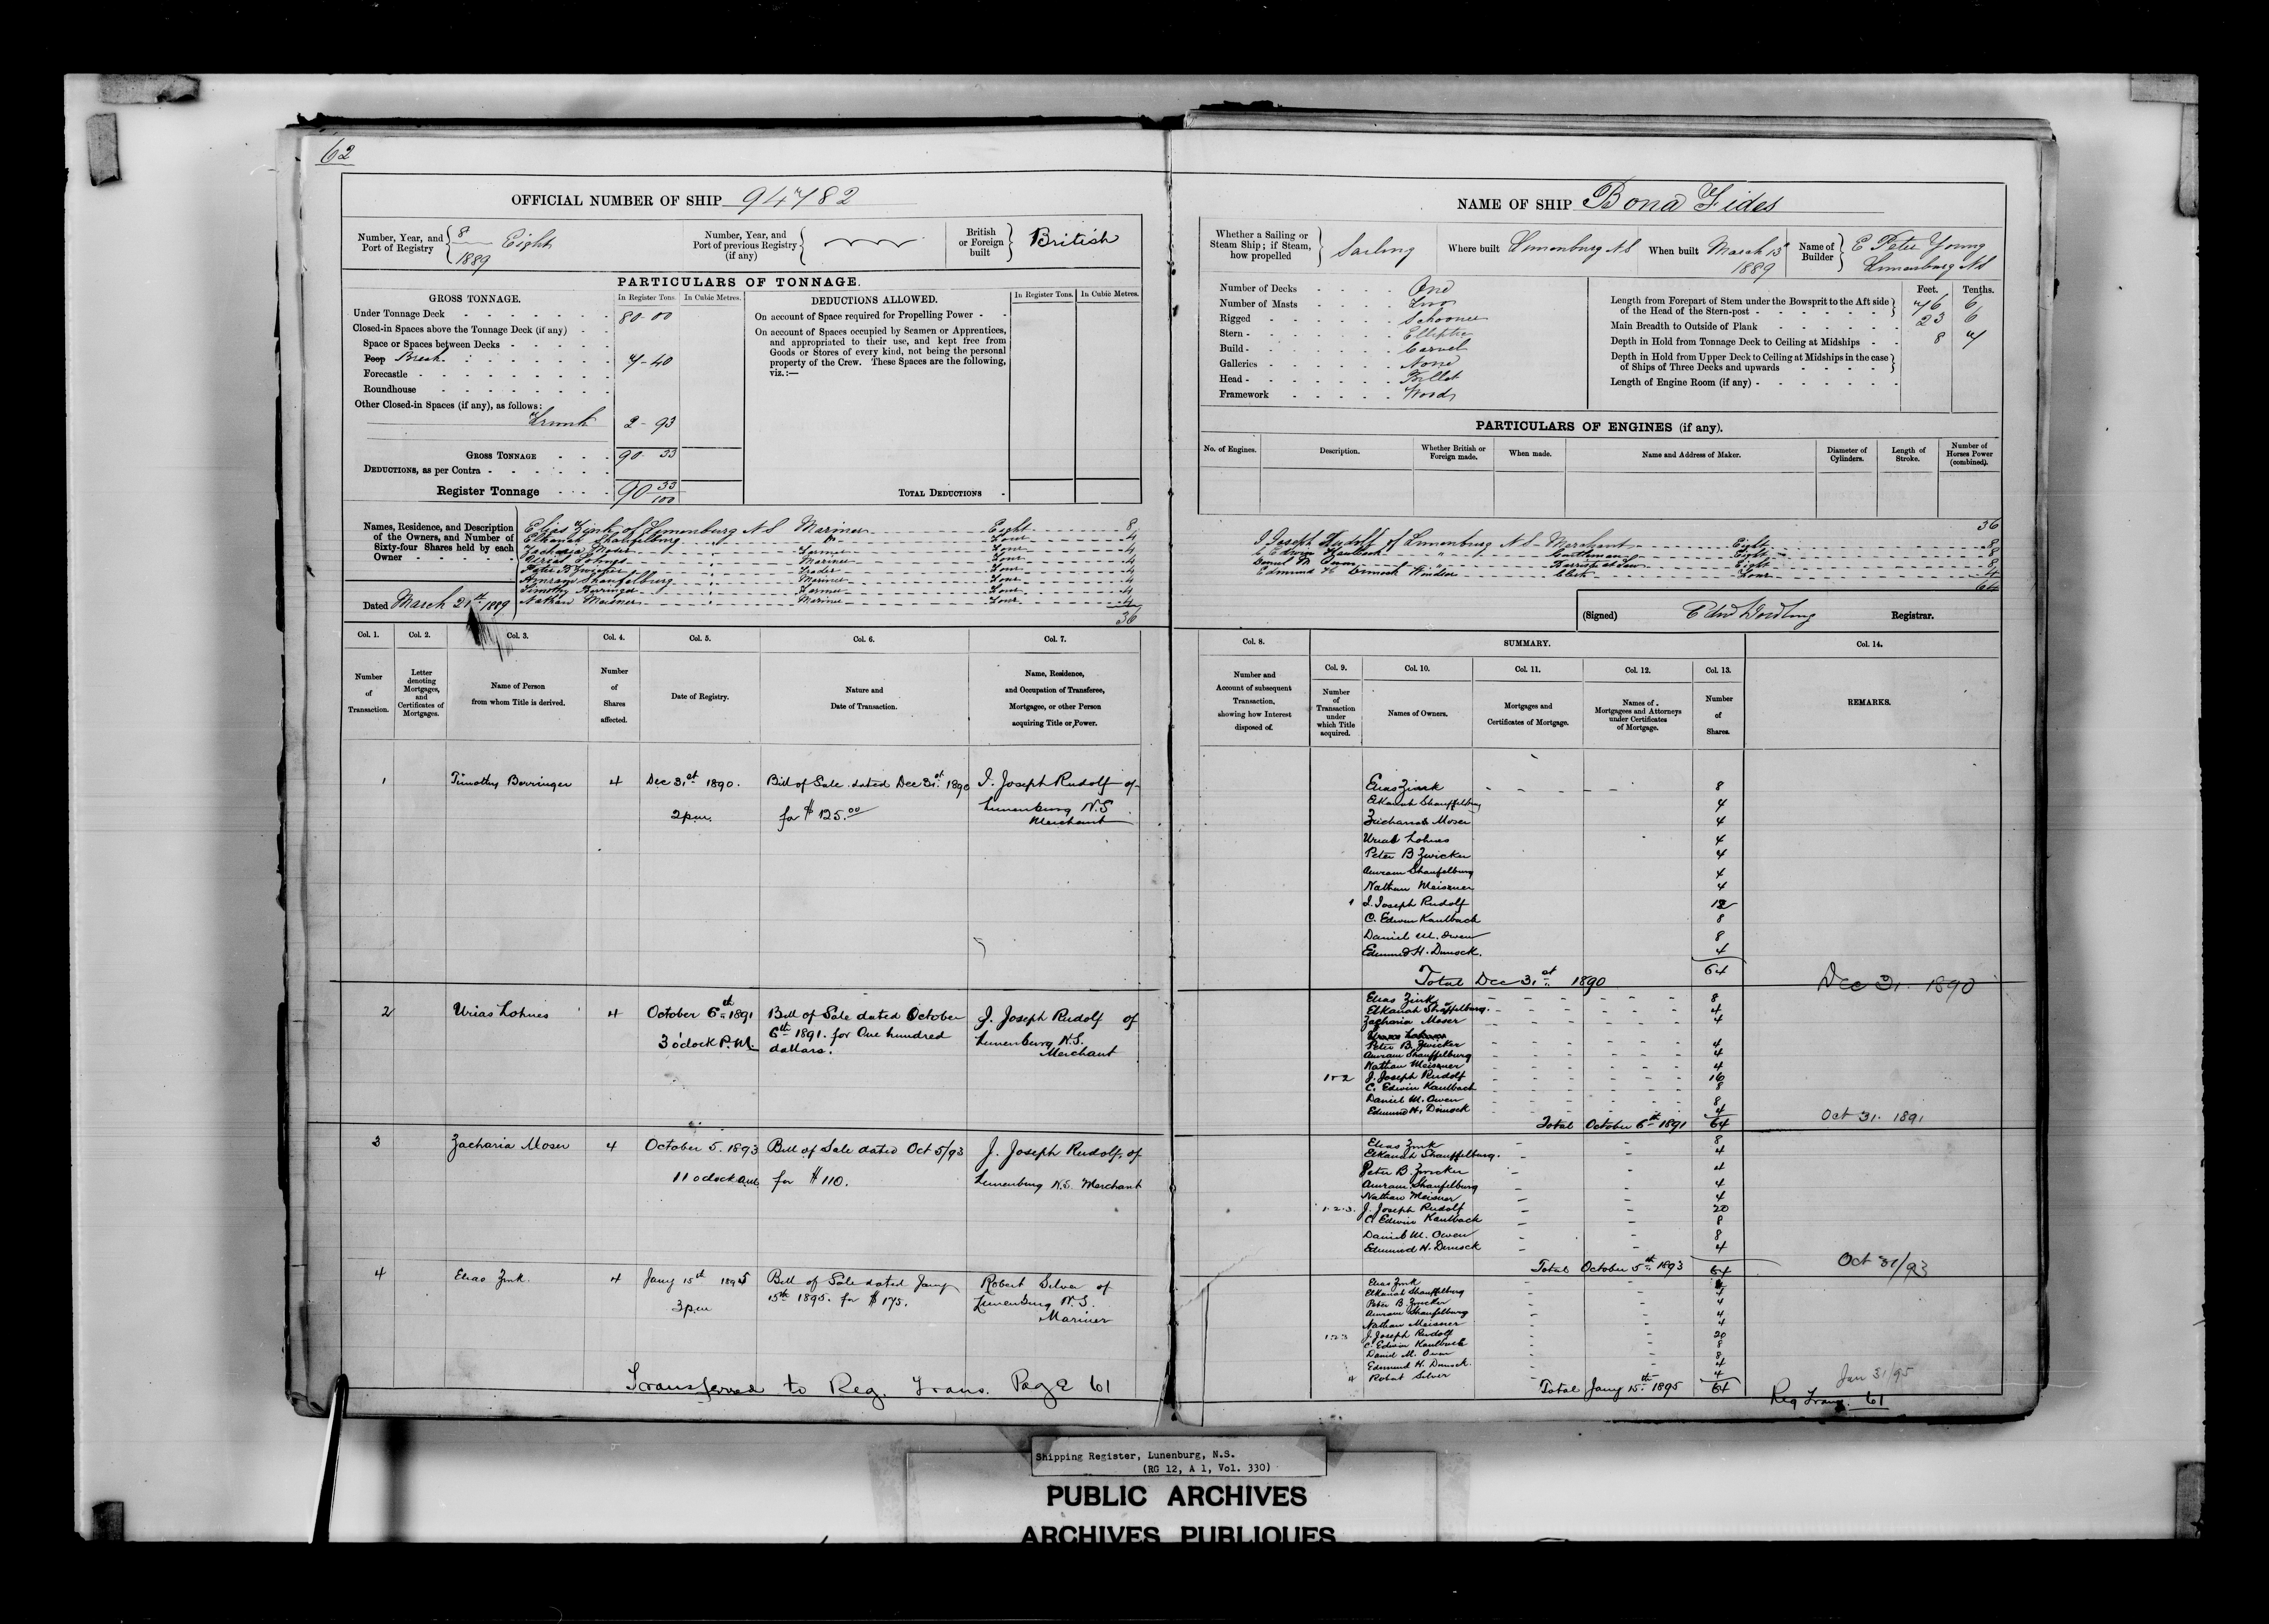 62
OFFICIAL NUMBER OF SHIP 94782
Number, Year, and Port of Registry 8 1889 Eight
Number, Year, and Port of previous Registry (if any)
British or Foreign built British
PARTICULARS OF TONNAGE.
GROSS TONNAGE. In Register Tons. In Cubic Metres.
DEDUCTIONS ALLOWED. In Register Tons. In Cubic Metres.
Under Tonnage Deck 80-00
Closed-in Spaces above the Tonnage Deck (if any)
Space or Spaces between Decks
Poop Break 7-40
Forecastle
Roundhouse
Other Closed-in Spaces (if any), as follows:
Trunk 2-93
GROSS TONNAGE 90-33
DEDUCTIONS, as per Contra
Register Tonnage 90 33/100
On account of Space required for Propelling Power
On account of Spaces occupied by Seamen or Apprentices,
and appropriated to their use, and kept free from
Goods or Stores of every kind, not being the personal
property of the Crew. These Spaces are the following,
viz.:—
TOTAL DEDUCTIONS
Names, Residence, and Description of the Owners, and Number of Sixty-four Shares held by each Owner
Elias Zink of Lunenburg N S Mariner Eight 8
Elkanah Shaufelburg Do Four 4
Zacharia Moser Farmer Four 4
Urias Lohnes Mariner Four 4
Peter B Zwicker Trader Four 4
Amram Shaufelburg Mariner Four 4
Timothy Berringer Farmer Four 4
Nathan Meisner Mariner Four 4
36
Dated March 21st 1889
NAME OF SHIP Bona Fides
Whether a Sailing or Steam Ship; if Steam, how propelled Sailing
Where built Lunenburg N S
When built March 15 1889
Name of Builder E Peter Young Lunenburg N S
Number of Decks One
Number of Masts Two
Rigged Schooner
Stern Elliptic
Build Carvel
Galleries None
Head Billet
Framework Wood
Feet. Tenths.
Length from Forepart of Stem under the Bowsprit to the Aft side of the Head of the Stern-post 76 6
Main Breadth to Outside of Plank 23 6
Depth in Hold from Tonnage Deck to Ceiling at Midships 8 7
Depth in Hold from Upper Deck to Ceiling at Midships in the case of Ships of Three Decks and upwards
Length of Engine Room (if any)
PARTICULARS OF ENGINES (if any).
No. of Engines. Description. Whether British or Foreign made. When made. Name and Address of Maker. Diameter of Cylinders. Length of Stroke. Number of Horses Power (combined).
36
J Joseph Rudolf of Lunenburg N S Merchant Eight 8
C Edwin Kaulback Gentleman Eight 8
Daniel M Owen Barrister at Law Eight 8
Edmund H Dimock Windsor Clerk Four 4
64
(Signed) Registrar.
Col. 1. Col. 2. Col. 3. Col. 4. Col. 5. Col. 6. Col. 7.
Number of Transaction.
Letter denoting Mortgages, and Certificates of Mortgages.
Name of Person from whom Title is derived.
Number of Shares affected.
Date of Registry.
Nature and Date of Transaction.
Name, Residence, and Occupation of Transferee, Mortgagee, or other Person acquiring Title or Power.
1 Timothy Berringer 4 Dec 31st 1890. Bill of Sale dated Dec 31st 1890 J. Joseph Rudolf of
2 p.m. for $125.00 Lunenburg N.S.
Merchant
2 Urias Lohnes 4 October 6th 1891 Bill of Sale dated October J. Joseph Rudolf of
3 o'clock P.M. 6th 1891. for One hundred Lunenburg N.S.
dollars. Merchant
3 Zacharia Moser 4 October 5. 1893 Bill of Sale dated Oct 5/93 J. Joseph Rudolf, of
11 oclock a.m. for $110. Lunenburg N.S. Merchant
4 Elias Zink. 4 Jany 15th 1895 Bill of Sale dated Jany Robert Silver of
3 p.m 15th 1895. for $175. Lunenburg N.S.
Mariner
Transferred to Reg. Trans. Page 61
Col. 8. SUMMARY. Col. 14.
Col. 9. Col. 10. Col. 11. Col. 12. Col. 13.
Number and Account of subsequent Transaction, showing how Interest disposed of.
Number of Transaction under which Title acquired.
Names of Owners.
Mortgages and Certificates of Mortgage.
Names of Mortgagees and Attorneys under Certificates of Mortgage.
Number of Shares.
REMARKS.
Elias Zink 8
Elkanah Shauffelburg 4
Zachariah Moser 4
Uriah Lohnes 4
Peter B Zwicker 4
Amram Shaufelburg 4
Nathan Meisner 4
1 J. Joseph Rudolf 12
C. Edwin Kaulback 8
Daniel M. Owen 8
Edmund H. Dimock. 4
Total Dec 31st 1890 64 Dec 31. 1890
Elias Zink 8
Elkanah Shaffelburg. 4
Zacharia Moser 4
Peter B. Zwicker 4
Amram Shauffelburg 4
Nathan Meisner 4
1 & 2 J. Joseph Rudolf 16
C. Edwin Kaulback 8
Daniel M. Owen 8
Edmund H. Dimock 4
Total October 6th 1891 64 Oct 31. 1891
Elias Zink 8
Elkanah Shauffelburg. 4
Peter B. Zwicker 4
Amram Shaufelburg 4
Nathan Meisner 4
1.2.3. J. Joseph Rudolf 20
C. Edwin Kaulback 8
Daniel M. Owen 8
Edmund H. Dimock 4
Total October 5th 1893 64 Oct 31/93
Elias Zink 4
Elkanah Shauffelburg 4
Peter B Zwicker 4
Amram Shaufelburg 4
Nathan Meisner 4
1.2.3 J. Joseph Rudolf 20
C. Edwin Kaulback 8
Daniel M. Owen 8
Edmund H. Dimock. 4
4 Robert Silver 4
Total Jany 15th 1895 64 Jan 31/95
Reg Trans. 61
Shipping Register, Lunenburg, N.S.
(RG 12, A 1, Vol. 330)
PUBLIC ARCHIVES
ARCHIVES PUBLIQUES